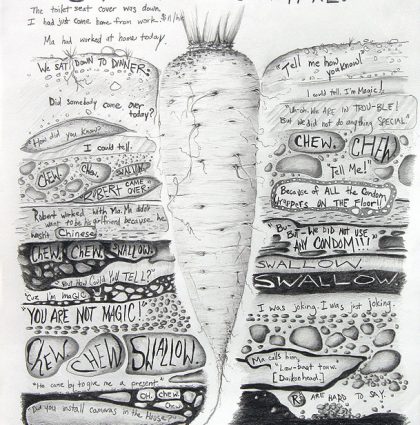 The toilet seat cover was down.
I had just come home from work.
Ma had worked at home today.
WE SAT DOWN TO DINNER.
Did somebody come over
today?
"How did you know?"
I could tell.
CHEW. Chew. SWALLOW.
ROBERT CAME
OVER.
Robert worked with Ma. Ma didn't
want to be his girlfriend because he
wasn't Chinese.
CHEW. CHEW. SWALLOW.
"But How Could YOU TELL?"
"Cuz I'm magic.
"YOU ARE NOT MAGIC!"
CHEW CHEW SWALLOW.
"He came by to give me a present."
OH. CHEW.
Chew.
"Did you install cameras in the House?"
"Tell me how
you know!"
I could tell. I'm Magic.
"Uh-oh. WE ARE IN TROU-BLE!
But We did not do anything SPECIAL."
CHEW. CHEW.
"Tell Me!"
Because of ALL the Condom
wrappers ON THE Floor!!
"BUT-
But-WE DID NOT USE
ANY CONDOM!!!"
SWALLOW.
SWALLOW.
I was joking. I was just joking.
Ma calls him,
"Low-baat tow."
[Daikonhead.]
R's ARE HARD TO SAY.